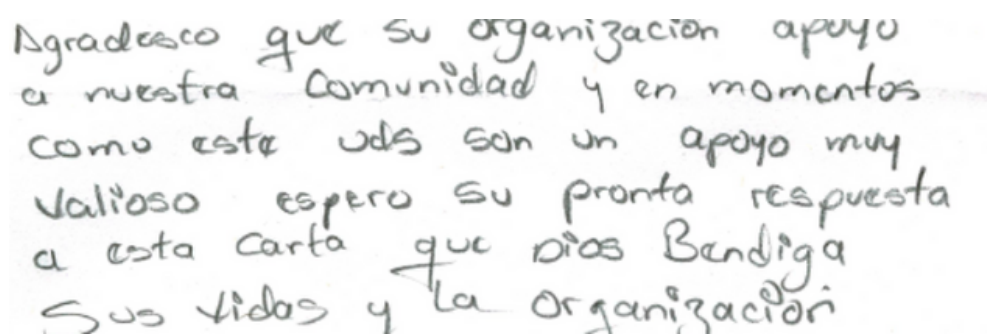 Agradesco que su organización apoyo
a nuestra Comunidad y en momentos
como este uds son un apoyo muy
Valioso espero su pronta respuesta
a esta Carta que Dios Bendiga
Sus Vidas y La organización